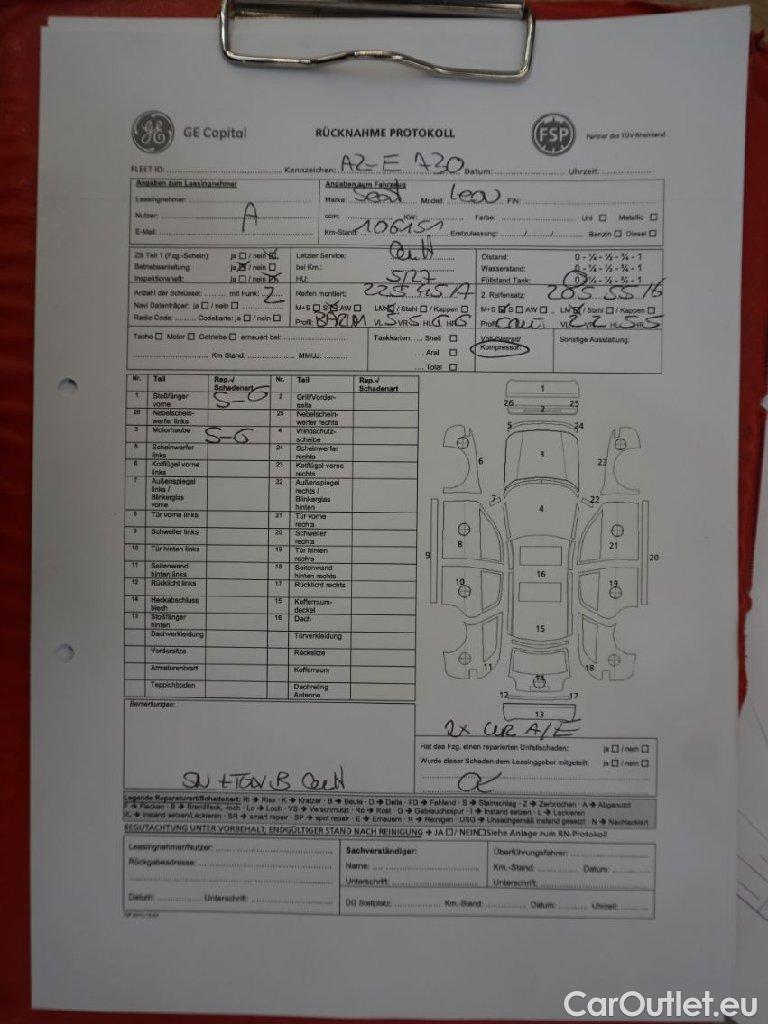 GE Capital
RÜCKNAHME PROTOKOLL
FSP
Partner des TÜV Rheinland
FLEET ID: Kennzeichen: AZ-E 730 Datum: Uhrzeit:
Angaben zum Leasingnehmer
Leasingnehmer:
Nutzer: A
E-Mail:
Angaben zum Fahrzeug
Marke: Seat Model: Leon FIN:
ccm: KW: Farbe: Uni Metallic
Km-Stand: 106151 Erstzulassung: / / Benzin Diesel
ZB Teil 1 (Fzg.-Schein): ja / nein
Betriebsanleitung: ja / nein
Inspektionsheft: ja / nein
Letzter Service:
bei Km.:
HU: 5/27
Ölstand: 0 - ¼ - ½ - ¾ - 1
Wasserstand: 0 - ¼ - ½ - ¾ - 1
Füllstand Tank: 0 - ¼ - ½ - ¾ - 1
Anzahl der Schlüssel: mit Funk: 2
Navi Datenträger: ja / nein
Radio Code: Codekarte: ja / nein
Reifen montiert: 225 45 17
M+S S AW LM / Stahl / Kappen
Profil: VL 5 VR 5 HL 6 HR 5
2. Reifensatz: 205 55 16
M+S S AW LM / Stahl / Kappen
Profil:
Tacho Motor Getriebe erneuert bei:
Km Stand: MM/JJ:
Tankkarten: Shell
Aral
Total
Voll-/Notrad/
Kompressor:
Sonstige Ausstattung:
Nr. Teil Rep.-/ Schadenart Nr. Teil Rep.-/ Schadenart
1 Stoßfänger vorne S-6 2 Grill/Vorderseite
26 Nebelscheinwerfer links 25 Nebelscheinwerfer rechts
3 Motorhaube S-6 4 Windschutzscheibe
5 Scheinwerfer links 24 Scheinwerfer rechts
6 Kotflügel vorne links 21 Kotflügel vorne rechts
7 Außenspiegel links / Blinkerglas vorne 22 Außenspiegel rechts / Blinkerglas hinten
8 Tür vorne links 21 Tür vorne rechts
9 Schweller links 20 Schweller rechts
10 Tür hinten links 19 Tür hinten rechts
11 Seitenwand hinten links 18 Seitenwand hinten rechts
12 Rücklicht links 17 Rücklicht rechts
14 Heckabschlussblech 15 Kofferraumdeckel
13 Stoßfänger hinten 16 Dach
Dachverkleidung Türverkleidung
Vordersitze Rücksitze
Armaturenbrett Kofferraum
Teppichboden Dachreling Antenne
1
26 25
2
5 24
3
6 23
7 22
4
8 21
9 20
16
10 19
15
11 18
12 17
13
Bemerkungen:
Hat das Fzg. einen reparierten Unfallschaden: ja / nein
Wurde dieser Schaden dem Leasinggeber mitgeteilt: ja / nein
Legende Reparaturart/Schadenart: RI → Riss - K → Kratzer - B → Beule - D → Delle - FD → Fehlend - S → Steinschlag - Z → Zerbrochen - A → Abgenutzt
BEGUTACHTUNG UNTER VORBEHALT, ENDGÜLTIGER STAND NACH REINIGUNG → JA / NEIN Siehe Anlage zum RN-Protokoll
Leasingnehmer/Nutzer:
Rückgabeadresse:
Datum: Unterschrift:
Sachverständiger:
Name:
Unterschrift:
Überführungsfahrer:
Km.-Stand: Datum:
Unterschrift:
ÜG Stellplatz: Km.-Stand: Datum: Uhrzeit:
CarOutlet.eu